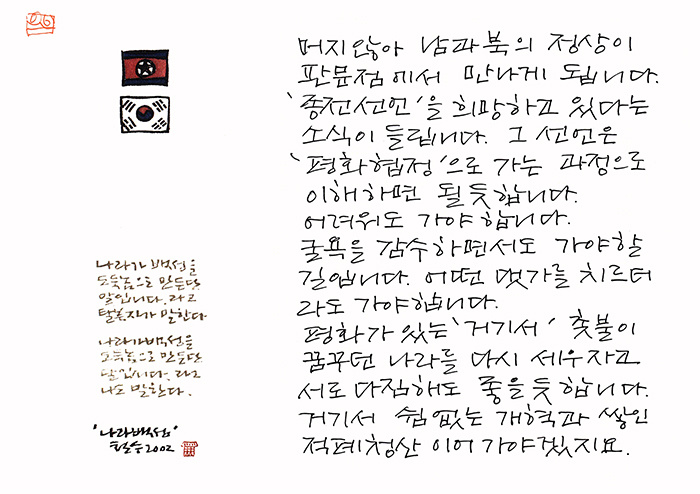 머지않아 남과북의 정상이
판문점에서 만나게 됩니다.
'종전선언'을 희망하고 있다는
소식이 들립니다. 그 선언은
'평화협정'으로 가는 과정으로
이해하면 될듯합니다.
어려워도 가야합니다.
굴욕을 감수하면서도 가야할
길입니다. 어떤 댓가를 치르더
라도 가야합니다.
평화가 있는 '거기서' 촛불이
꿈꾸던 나라를 다시 세우자고
서로 다짐해도 좋을듯합니다.
거기서 쉼없는 개혁과 쌓인
적폐청산 이어가야겠지요.
나라가 백성을
도둑놈으로 만든단
말입니다. 라고
탈혼자가 말한다
나라가 백성을
도둑놈으로 만든단
말입니다. 라고
나도 말한다.
'나라백성'
철수 2002